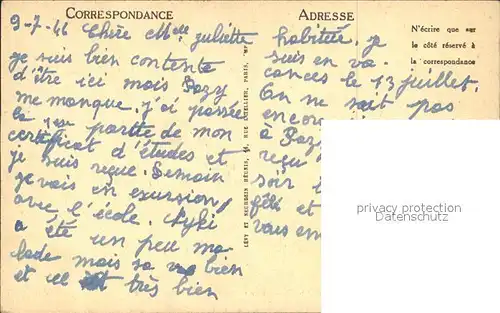 CORRESPONDANCE
ADRESSE
N'écrire que sur
le côté réservé à
la correspondance
9-7-46 Chère Melle juliette
je suis bien contente
d'être ici mais Pozy
me manque. j'ai passée
la 1ère partie de mon
certificat d'études et
je suis reçue. Demain
je vais en excursion
avec l'école. Kyki
a été un peu ma
lade mais sa va bien
et il est très bien
LÉVY ET NEURDEIN RÉUNIS, 44, RUE LETELLIER, PARIS, IMP
habituée. je
suis en va
cances le 13 juillet.
On ne sait pas
encor
à Poz
reçu
soir
fêlé et
vous em
privacy protection
Datenschutz